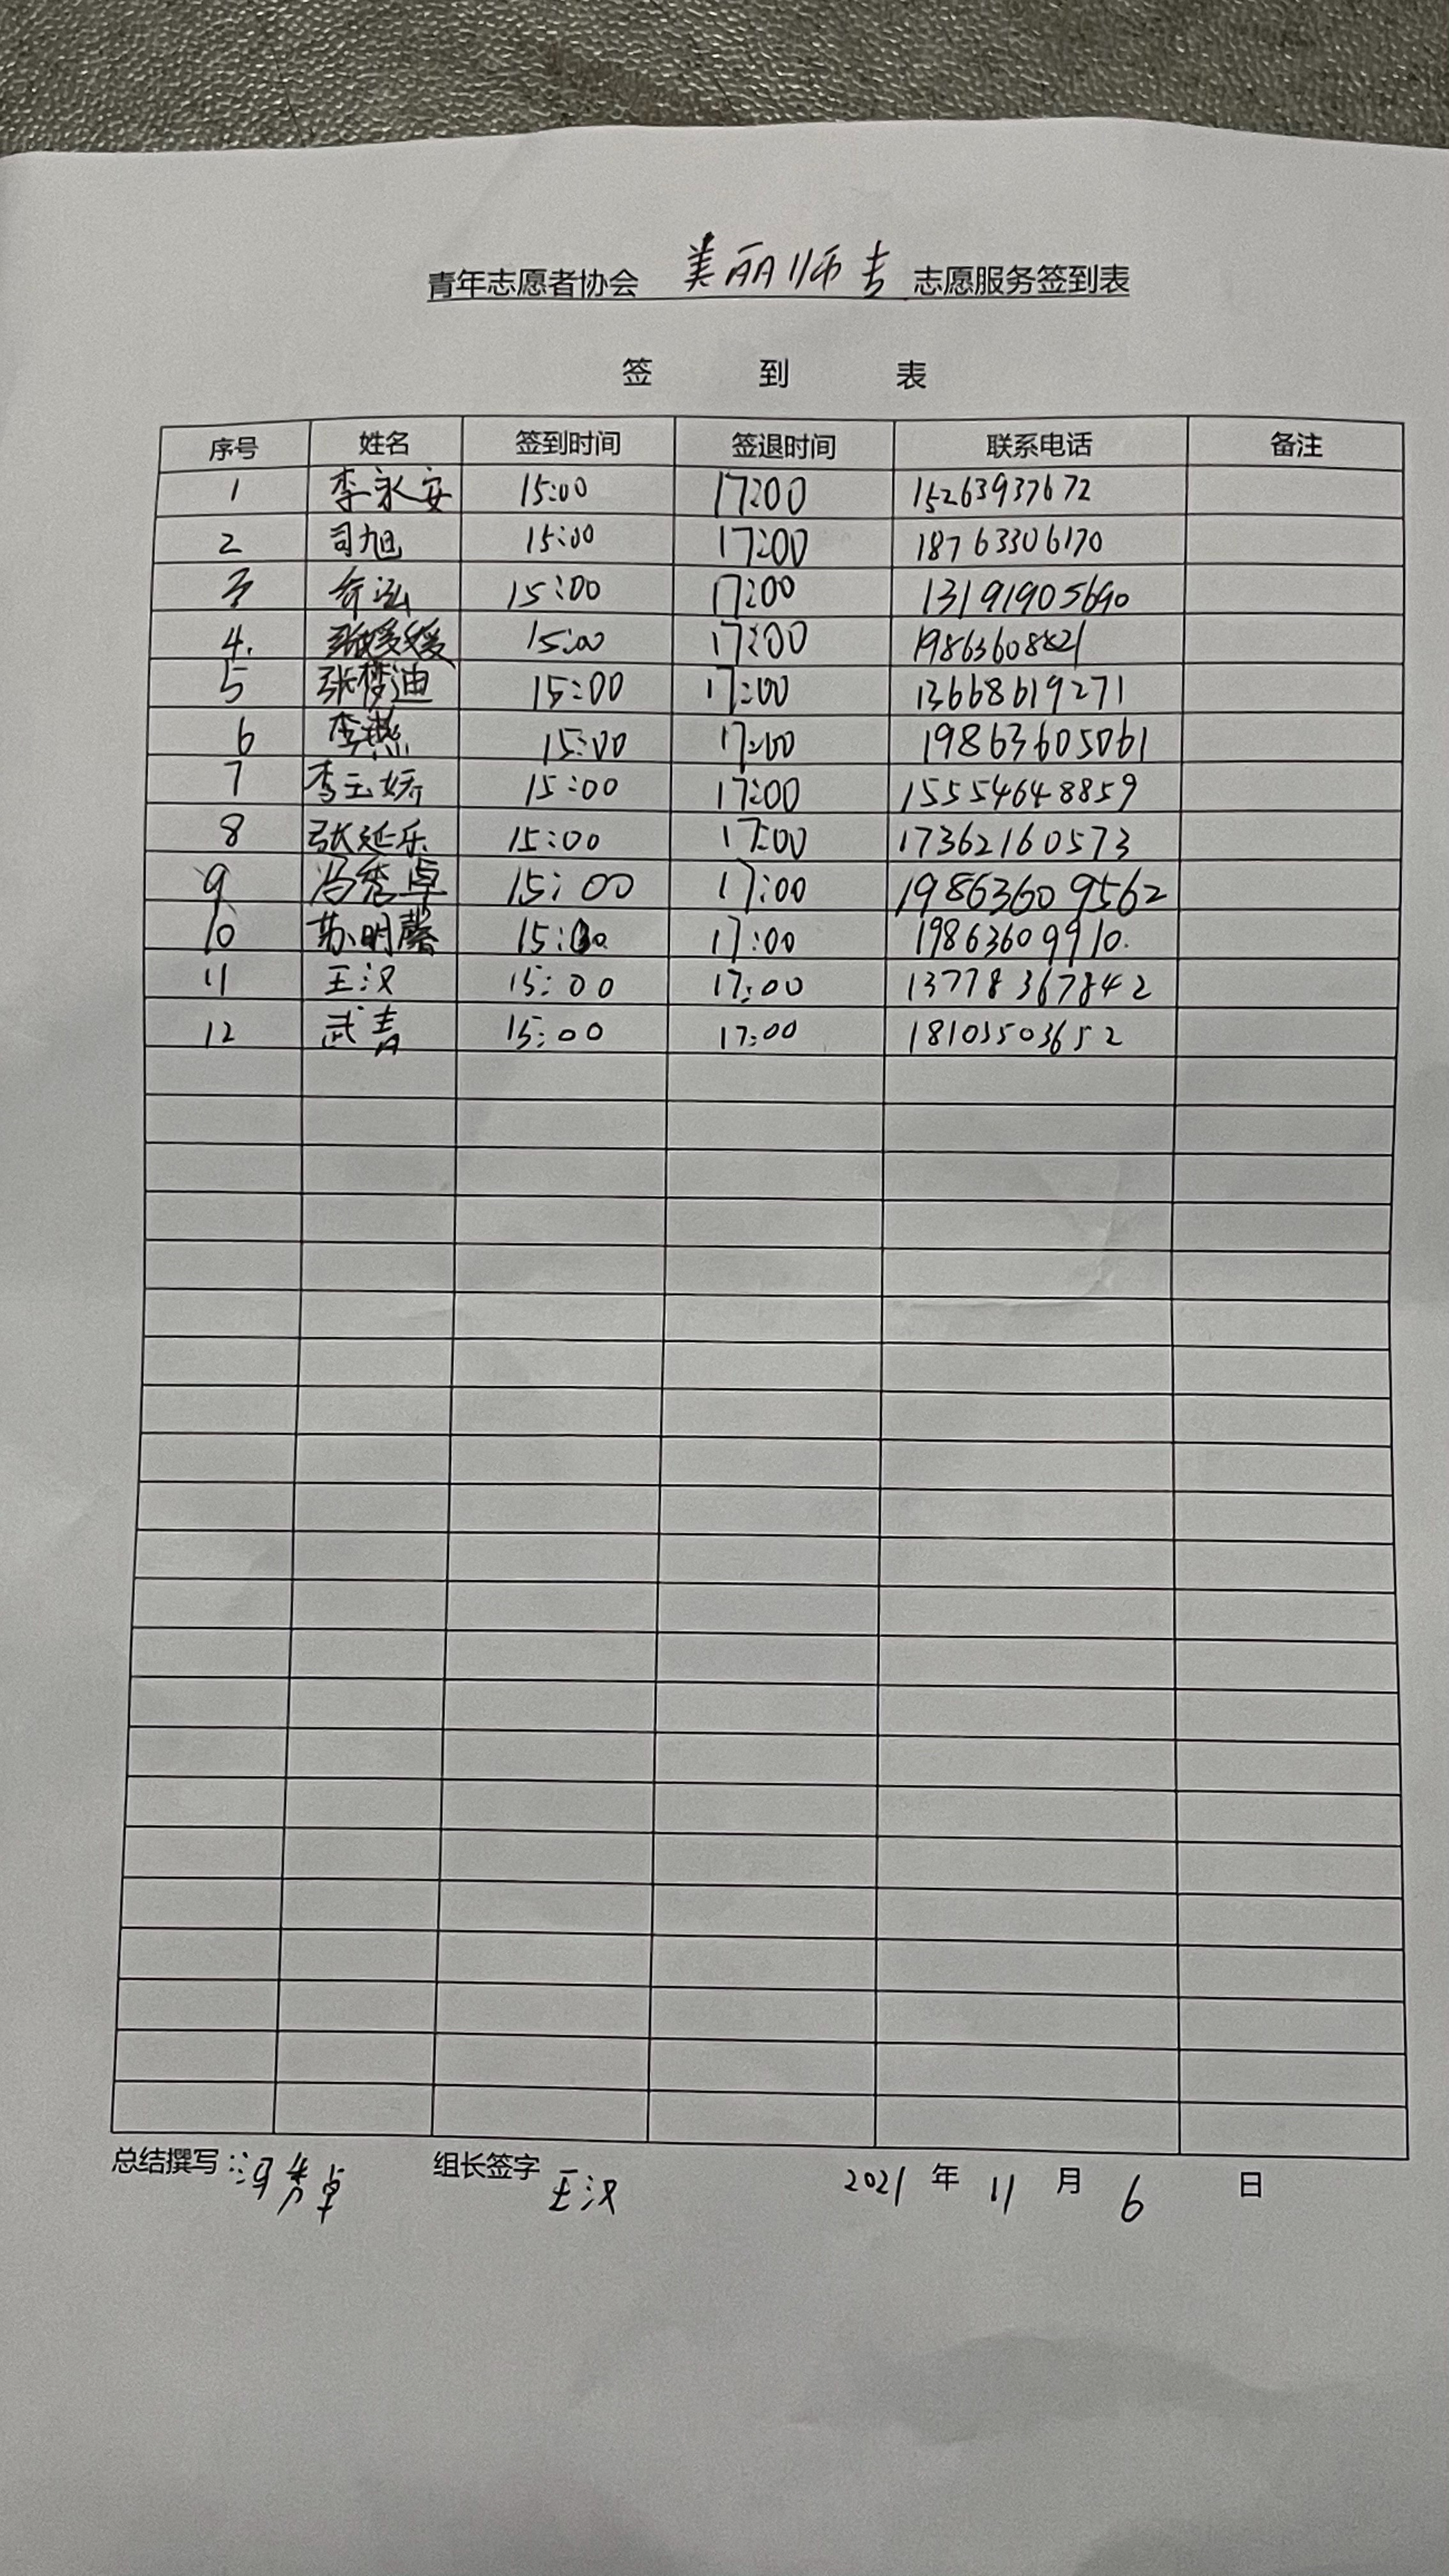 青年志愿者协会 美丽师专 志愿服务签到表
签 到 表
序号 姓名 签到时间 签退时间 联系电话 备注
1 李永安 15:00 17:00 15263937672
2 司旭 15:00 17:00 18763306170
3 15:00 17:00 13191905690
4. 张媛媛 15:00 17:00 19863608821
5 张梦迪 15:00 17:00 13668619271
6 李燕 15:00 17:00 19863605061
7 李玉娇 15:00 17:00 15554648859
8 张延乐 15:00 17:00 17362160573
9 冯秀卓 15:00 17:00 19863609562
10 苏明馨 15:00 17:00 19863609910.
11 王汉 15:00 17:00 13778367842
12 武青 15:00 17:00 18103503652
总结撰写:冯秀卓 组长签字 王汉 2021 年 11 月 6 日